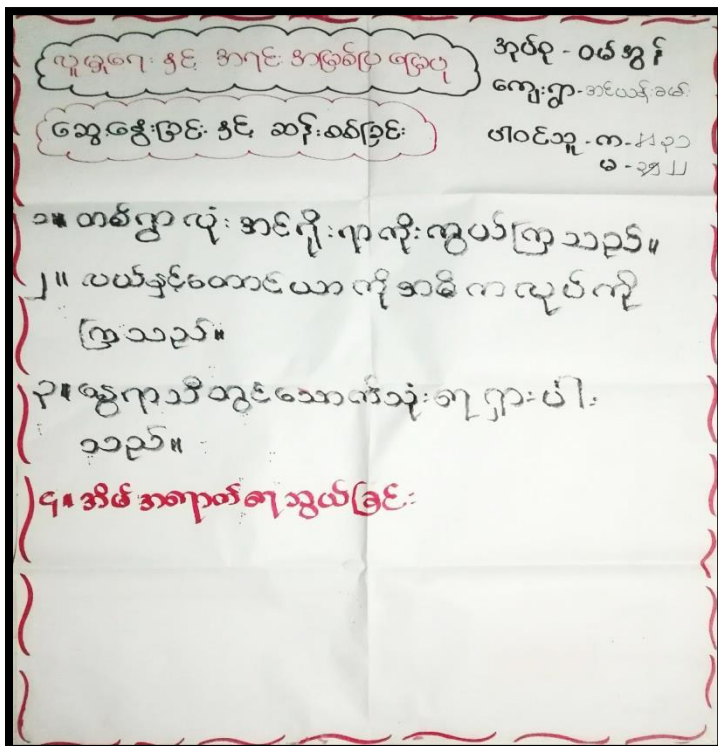 လူမှုရေး နှင့် အရင်းအမြစ်ပြ မြေပုံ
ဆွေးနွေးခြင်း နှင့် ဆန်းစစ်ခြင်း
အုပ်စု - ဝမ်အွန်
ကျေးရွာ-အင်ယန်းခမ်း
ပါဝင်သူ - က -
မ -
၁။ တစ်ရွာလုံး အင်ရိုးရာ ကိုးကွယ်ကြသည်။
၂။ လယ်နှင့်တောင်ယာ ကို အဓိက လုပ်ကို
ကြသည်။
၃။ နွေရာသီတွင်သောက်သုံးရေ ရှားပါး
သည်။
၄။ အိမ်အရောက်ရေသွယ်ခြင်း